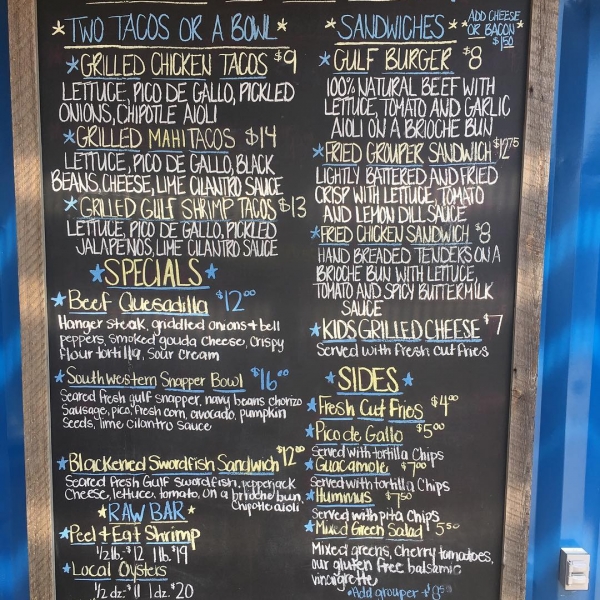 TWO TACOS OR A BOWL
GRILLED CHICKEN TACOS $9
LETTUCE, PICO DE GALLO, PICKLED
ONIONS, CHIPOTLE AIOLI
GRILLED MAHI TACOS $14
LETTUCE, PICO DE GALLO, BLACK
BEANS, CHEESE, LIME CILANTRO SAUCE
GRILLED GULF SHRIMP TACOS $13
LETTUCE, PICO DE GALLO, PICKLED
JALAPENOS, LIME CILANTRO SAUCE
SPECIALS
Beef Quesadilla $12.00
Hanger steak, griddled onions + bell
peppers, smoked gouda cheese, crispy
flour tortilla, sour cream
Southwestern Snapper Bowl $16.00
Seared fresh gulf snapper, navy beans chorizo
sausage, pico, fresh corn, avocado, pumpkin
seeds, lime cilantro sauce
Blackened Swordfish Sandwich $12.00
Seared fresh Gulf swordfish, pepperjack
cheese, lettuce, tomato, on a brioche bun,
chipotle aioli
RAW BAR
Peel + Eat Shrimp
1/2 lb. $12 1 lb. $19
Local Oysters
1/2 dz. $11 1 dz. $20
SANDWICHES
ADD CHEESE
OR BACON
$1.50
GULF BURGER $8
100% NATURAL BEEF WITH
LETTUCE, TOMATO AND GARLIC
AIOLI ON A BRIOCHE BUN
FRIED GROUPER SANDWICH $12.75
LIGHTLY BATTERED AND FRIED
CRISP WITH LETTUCE, TOMATO
AND LEMON DILL SAUCE
FRIED CHICKEN SANDWICH $8
HAND BREADED TENDERS ON A
BRIOCHE BUN WITH LETTUCE,
TOMATO AND SPICY BUTTERMILK
SAUCE
KIDS GRILLED CHEESE $7
Served with fresh cut fries
SIDES
Fresh Cut Fries $4.00
Pico de Gallo $5.00
Served with tortilla Chips
Guacamole $7.00
Served with tortilla Chips
Hummus $7.50
Served with pita Chips
Mixed Green Salad $5.50
Mixed greens, cherry tomatoes,
our gluten free balsamic
vinaigrette
Add grouper + $8.50